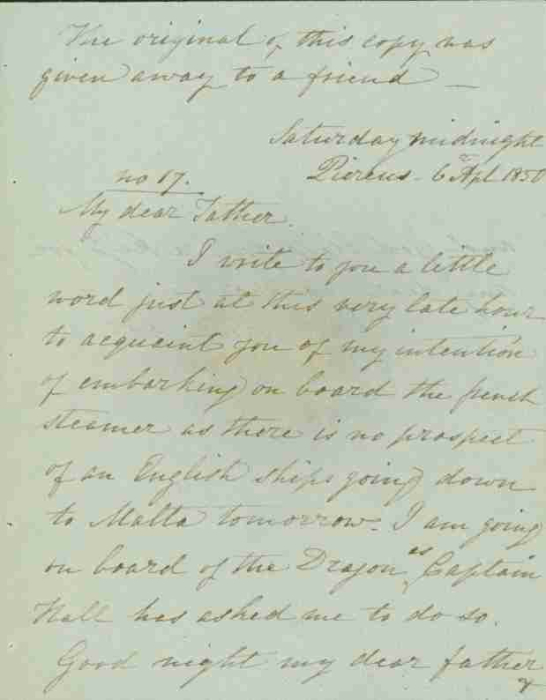 The original of this copy was
given away to a friend —
Saturday midnight
Piereus - 6th Apl 1850
no 17.
My dear Father.
I write to you a little
word just at this very late hour
to acquaint you of my intention
of embarking on board the french
steamer as there is no prospect
of an English ships going down
to Malta tomorrow. I am going
on board of the Dragon as Captain
Hall has asked me to do so.
Good night my dear father
&